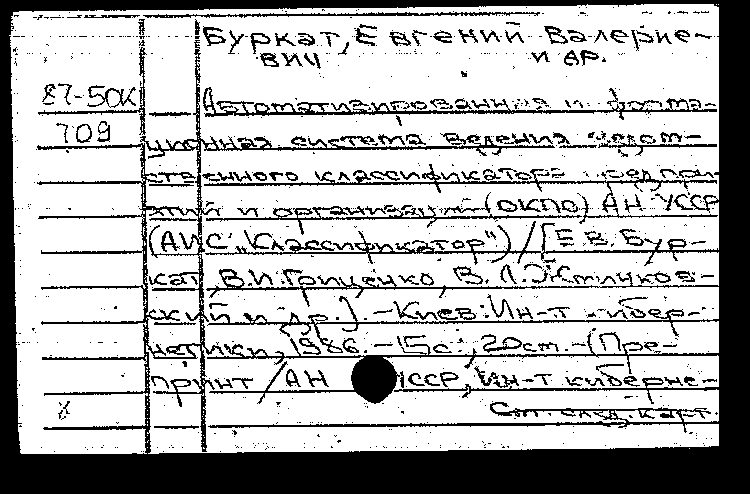 Буркат, Евгений Валерие-
вич и др.
87-50к Автоматизированная информа-
709 ционная система ведения ведом-
ственного классификатора предпри-
ятий и организаций (ОКПО) АН УССР
(АИС "Классификатор") / [Е.В. Бур-
кат, В.И. Гриценко, В.
ский и др.] - Киев: Ин-т кибер-
нетики, 1986. - 15 с.; 20 см. - (Пре-
принт / АН УССР, Ин-т киберне-
См. след. карт.